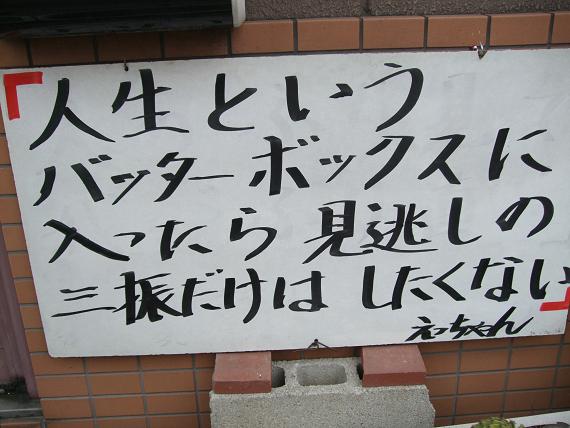 「人生という
バッターボックスに
入ったら見逃しの
三振だけはしたくない」
えっちゃん